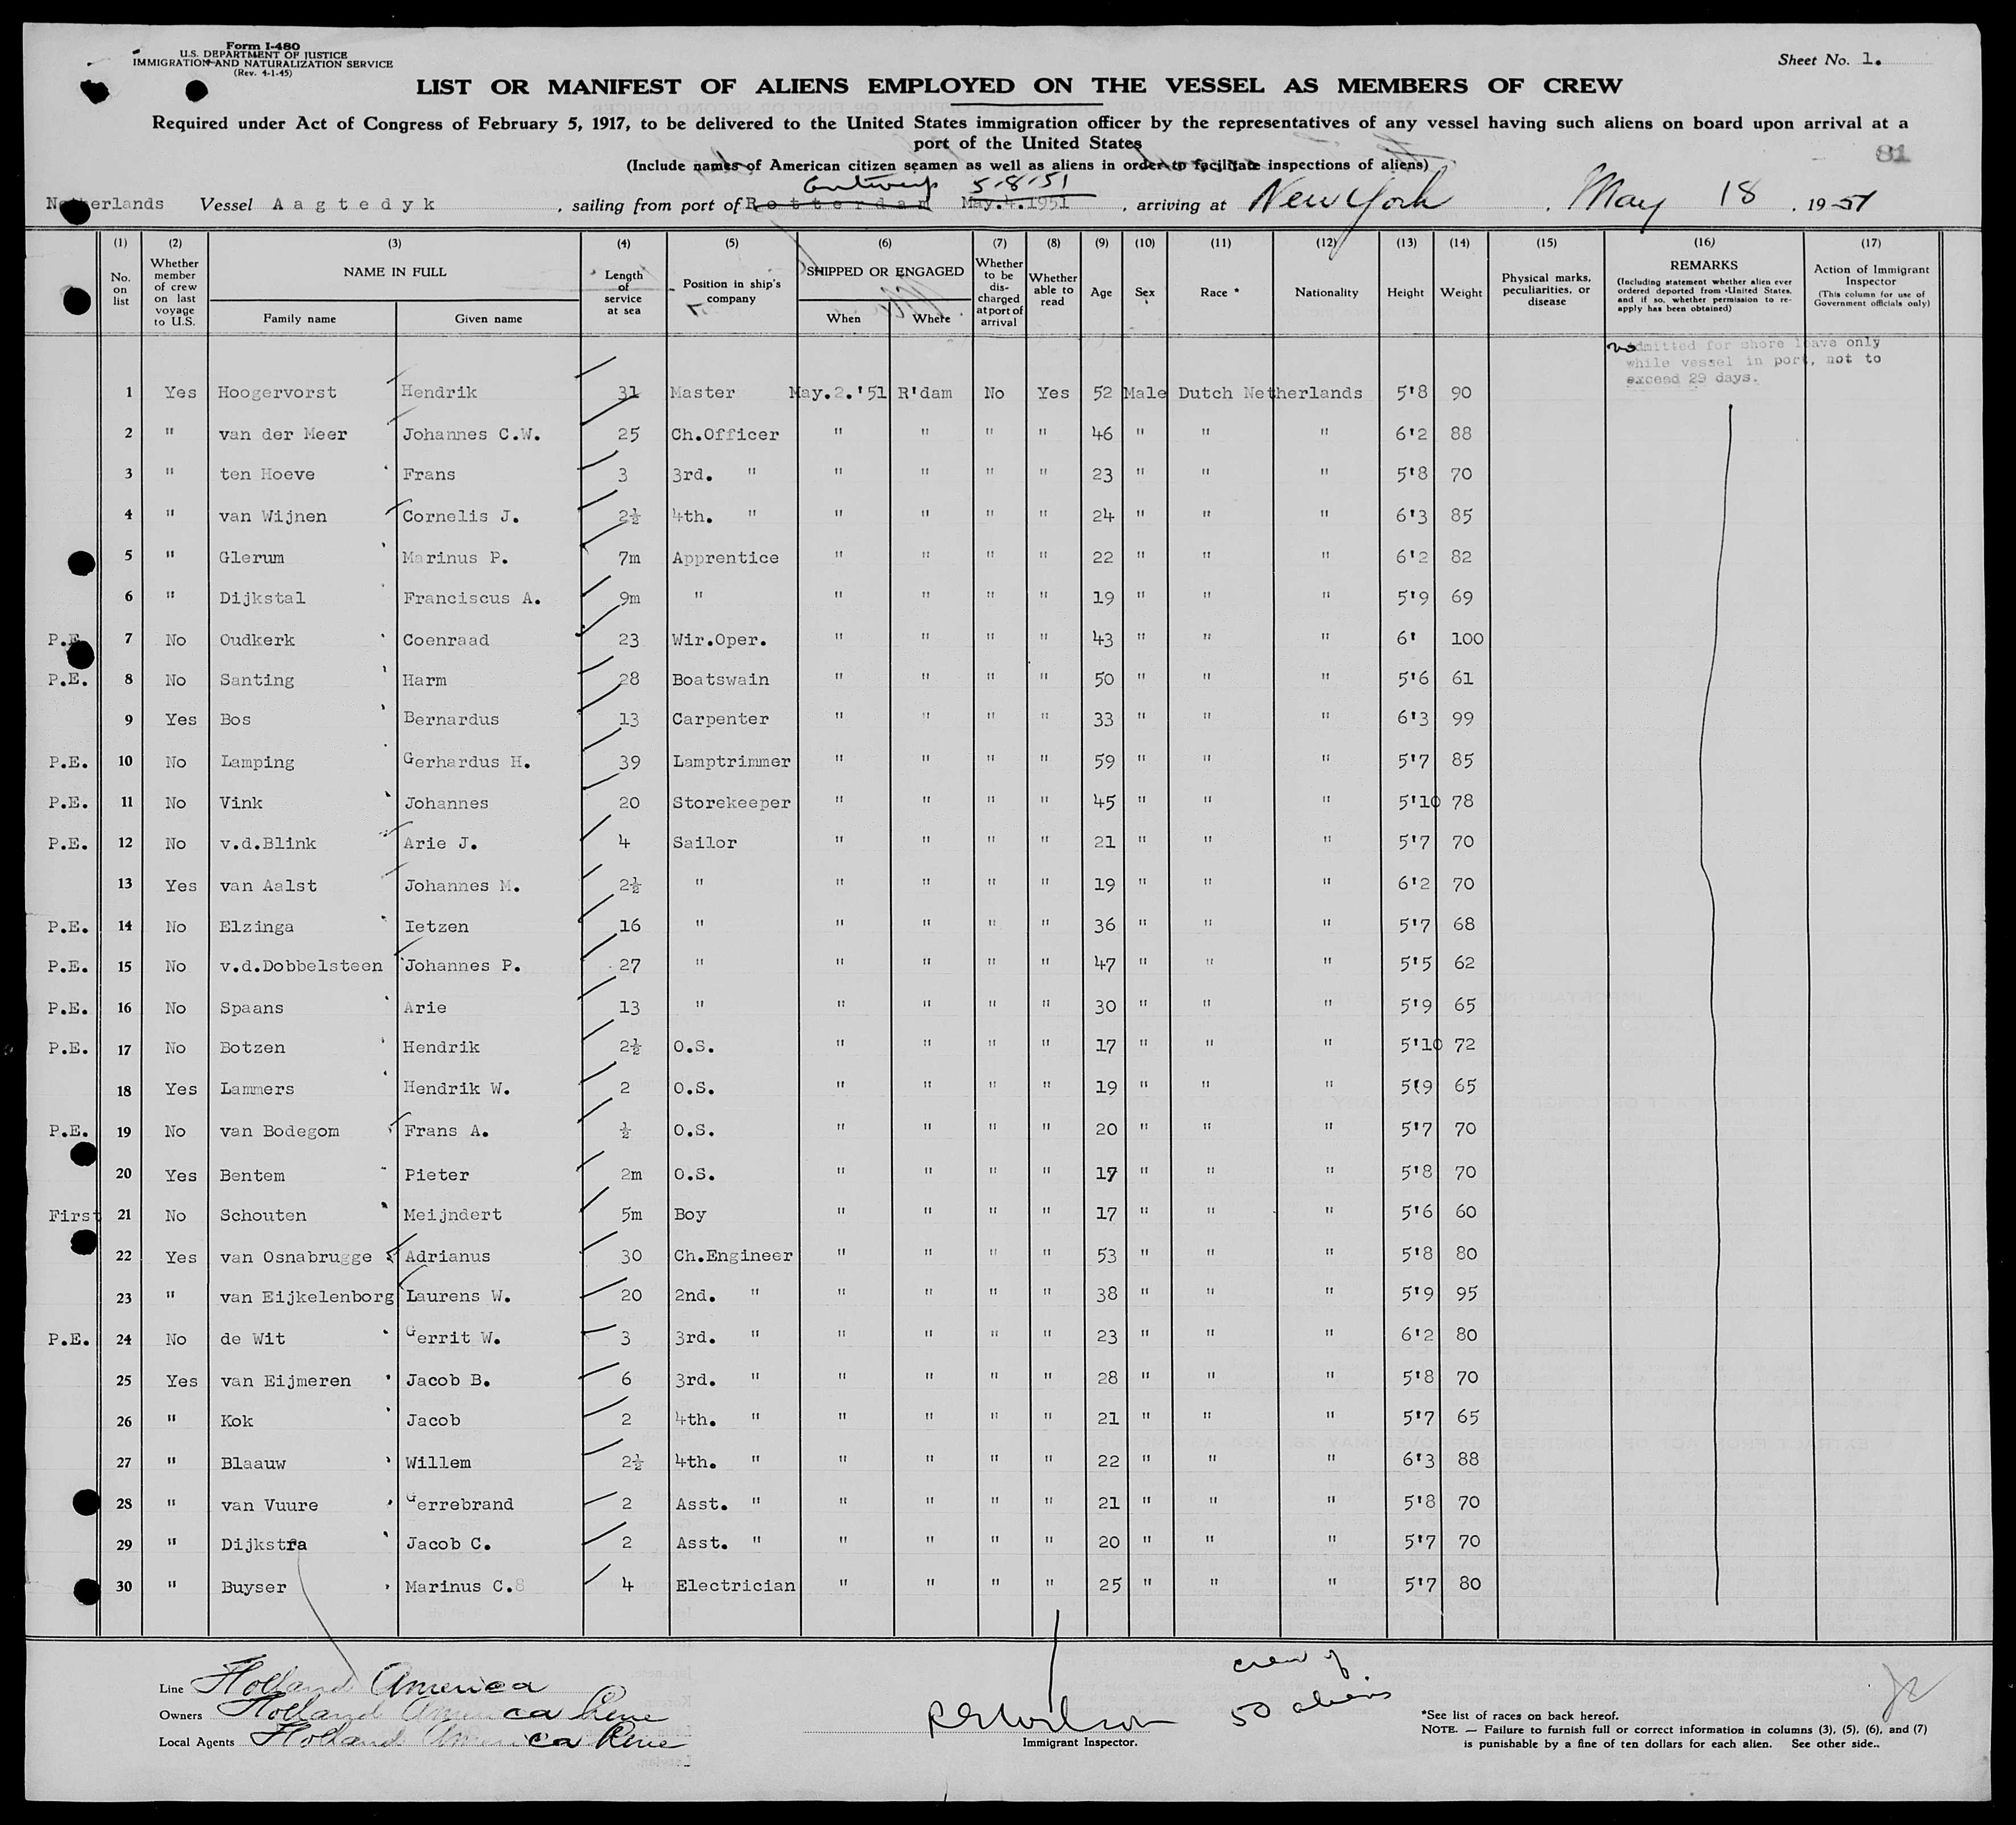 Form I-480
U.S. DEPARTMENT OF JUSTICE
IMMIGRATION AND NATURALIZATION SERVICE
(Rev. 4-1-45)
Sheet No. 1.
LIST OR MANIFEST OF ALIENS EMPLOYED ON THE VESSEL AS MEMBERS OF CREW
Required under Act of Congress of February 5, 1917, to be delivered to the United States immigration officer by the representatives of any vessel having such aliens on board upon arrival at a
port of the United States
(Include names of American citizen seamen as well as aliens in order to facilitate inspections of aliens)
81
Antwerp 5/8/51
Netherlands Vessel Aagtedyk, sailing from port of Rotterdam May.4.1951, arriving at New York, May 18, 1951
(1) (2) (3) (4) (5) (6) (7) (8) (9) (10) (11) (12) (13) (14) (15) (16) (17)
No. on list
Whether member of crew on last voyage to U.S.
NAME IN FULL
Family name Given name
Length of service at sea
Position in ship's company
SHIPPED OR ENGAGED
When Where
Whether to be discharged at port of arrival
Whether able to read
Age Sex Race * Nationality Height Weight
Physical marks, peculiarities, or disease
REMARKS
(Including statement whether alien ever ordered deported from United States, and if so, whether permission to reapply has been obtained)
Action of Immigrant Inspector
(This column for use of Government officials only)
admitted for shore leave only
while vessel in port, not to
exceed 29 days.
1 Yes Hoogervorst Hendrik 31 Master May.2.'51 R'dam No Yes 52 Male Dutch Netherlands 5'8 90
2 " van der Meer Johannes C.W. 25 Ch.Officer " " " " 46 " " " 6'2 88
3 " ten Hoeve Frans 3 3rd. " " " " " 23 " " " 5'8 70
4 " van Wijnen Cornelis J. 2½ 4th. " " " " " 24 " " " 6'3 85
5 " Glerum Marinus P. 7m Apprentice " " " " 22 " " " 6'2 82
6 " Dijkstal Franciscus A. 9m " " " " " 19 " " " 5'9 69
P.E. 7 No Oudkerk Coenraad 23 Wir.Oper. " " " " 43 " " " 6' 100
P.E. 8 No Santing Harm 28 Boatswain " " " " 50 " " " 5'6 61
9 Yes Bos Bernardus 13 Carpenter " " " " 33 " " " 6'3 99
P.E. 10 No Lamping Gerhardus H. 39 Lamptrimmer " " " " 59 " " " 5'7 85
P.E. 11 No Vink Johannes 20 Storekeeper " " " " 45 " " " 5'10 78
P.E. 12 No v.d.Blink Arie J. 4 Sailor " " " " 21 " " " 5'7 70
13 Yes van Aalst Johannes M. 2½ " " " " " 19 " " " 6'2 70
P.E. 14 No Elzinga Ietzen 16 " " " " " 36 " " " 5'7 68
P.E. 15 No v.d.Dobbelsteen Johannes P. 27 " " " " " 47 " " " 5'5 62
P.E. 16 No Spaans Arie 13 " " " " " 30 " " " 5'9 65
P.E. 17 No Botzen Hendrik 2½ O.S. " " " " 17 " " " 5'10 72
18 Yes Lammers Hendrik W. 2 O.S. " " " " 19 " " " 5(9 65
P.E. 19 No van Bodegom Frans A. ½ O.S. " " " " 20 " " " 5'7 70
20 Yes Bentem Pieter 2m O.S. " " " " 17 " " " 5'8 70
First 21 No Schouten Meijndert 5m Boy " " " " 17 " " " 5'6 60
22 Yes van Osnabrugge Adrianus 30 Ch.Engineer " " " " 53 " " " 5'8 80
23 " van Eijkelenborg Laurens W. 20 2nd. " " " " " 38 " " " 5'9 95
P.E. 24 No de Wit Gerrit W. 3 3rd. " " " " " 23 " " " 6'2 80
25 Yes van Eijmeren Jacob B. 6 3rd. " " " " " 28 " " " 5'8 70
26 " Kok Jacob 2 4th. " " " " " 21 " " " 5'7 65
27 " Blaauw Willem 2½ 4th. " " " " " 22 " " " 6'3 88
28 " van Vuure Gerrebrand 2 Asst. " " " " " 21 " " " 5'8 70
29 " Dijkstra Jacob C. 2 Asst. " " " " " 20 " " " 5'7 70
30 " Buyser Marinus C. 4 Electrician " " " " 25 " " " 5'7 80
Line Holland America
Owners Holland America Line
Local Agents Holland America Line
Immigrant Inspector.
crew of
50 aliens
*See list of races on back hereof.
NOTE. — Failure to furnish full or correct information in columns (3), (5), (6), and (7)
is punishable by a fine of ten dollars for each alien. See other side..